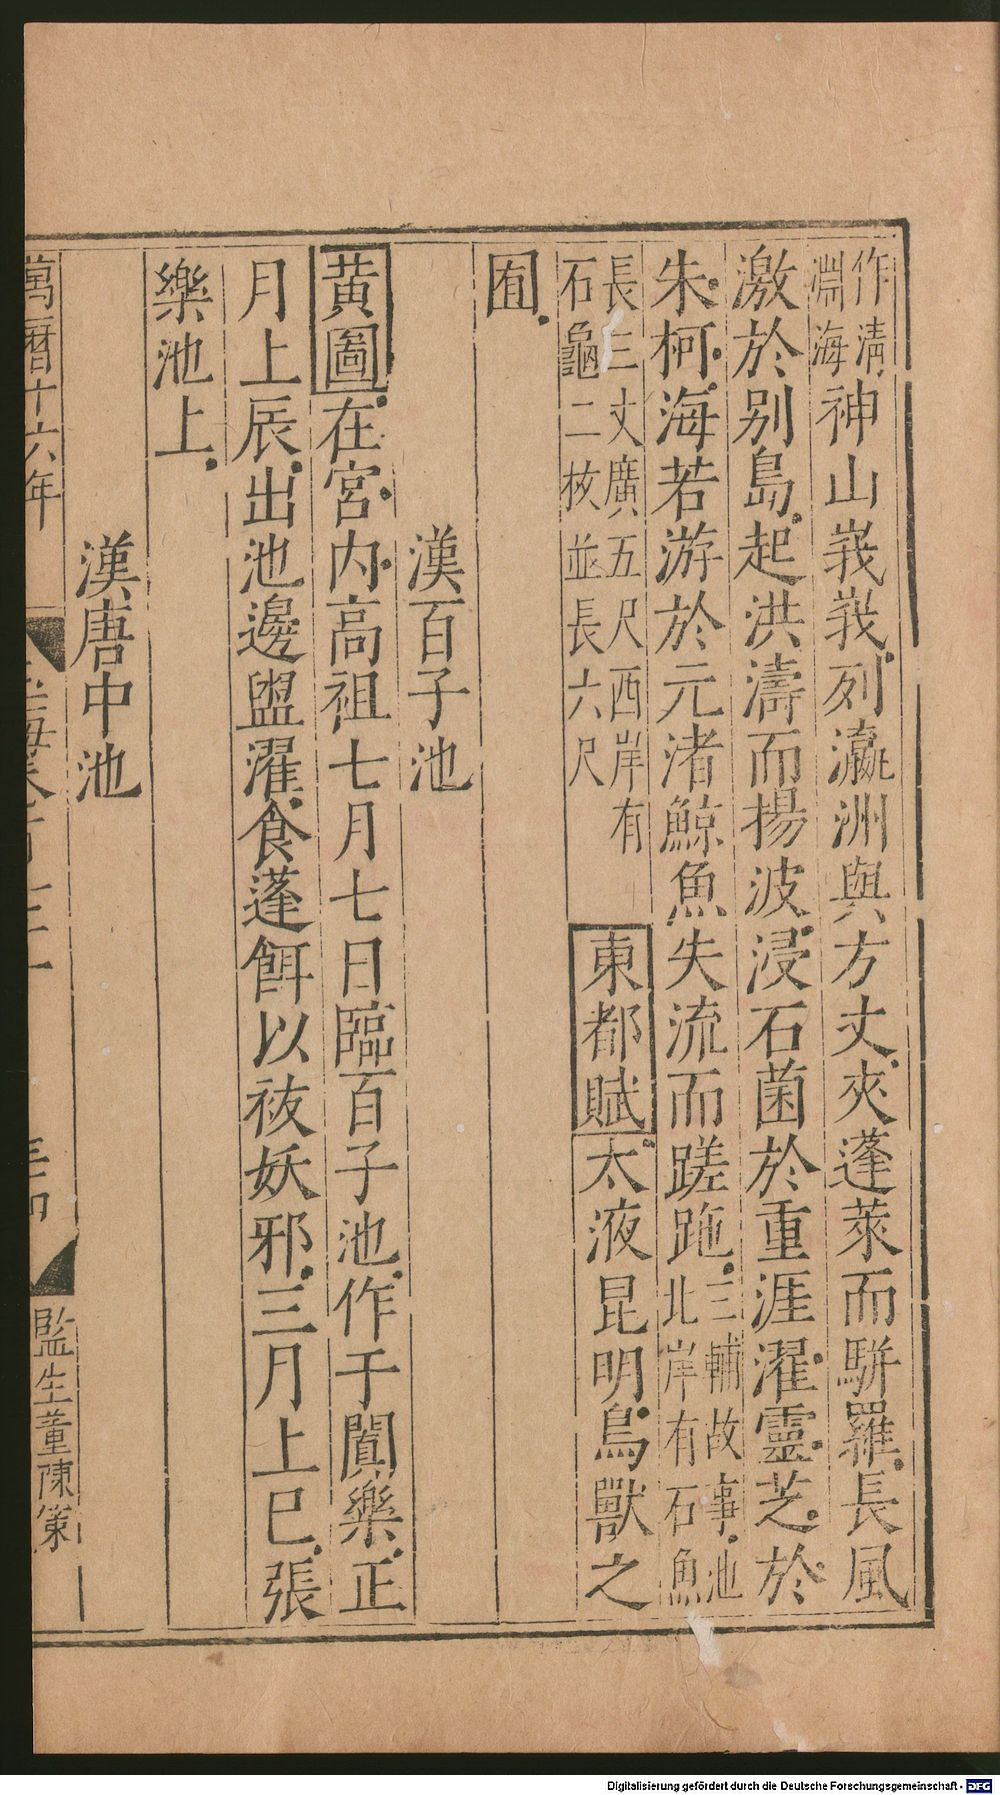 作清淵海神山峩峩列瀛洲與方丈夾蓬萊而駢羅長風
激於别島起洪濤而揚波浸石菌於重涯濯靈芝於
朱柯海若游於元渚鯨魚失流而蹉跎三輔故事池北岸有石魚
長三丈廣五尺西岸有石龜二枚並長六尺東都賦太液昆明鳥獸之
囿
漢百子池
黄圖在宮内高祖七月七日臨百子池作于闐樂正
月上辰出池邊盥濯食蓬餌以祓妖邪三月上巳張
樂池上
漢唐中池
萬曆十六年
監生董陳策
Digitalisierung gefördert durch die Deutsche Forschungsgemeinschaft - DFG